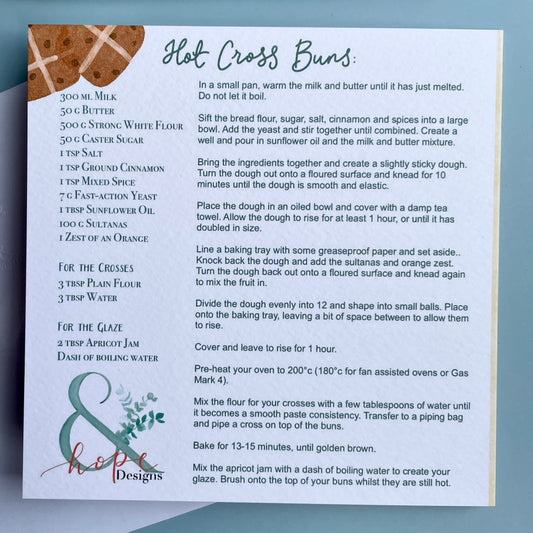 Hot Cross Buns:
300 ml Milk
50 g Butter
500 g Strong White Flour
50 g Caster Sugar
1 tsp Salt
1 tsp Ground Cinnamon
1 tsp Mixed Spice
7 g Fast-action Yeast
1 tbsp Sunflower Oil
100 g Sultanas
1 Zest of an Orange
For the Crosses
3 tbsp Plain Flour
3 tbsp Water
For the Glaze
2 tbsp Apricot Jam
Dash of boiling water
&
hope
Designs
In a small pan, warm the milk and butter until it has just melted.
Do not let it boil.
Sift the bread flour, sugar, salt, cinnamon and spices into a large
bowl. Add the yeast and stir together until combined. Create a
well and pour in sunflower oil and the milk and butter mixture.
Bring the ingredients together and create a slightly sticky dough.
Turn the dough out onto a floured surface and knead for 10
minutes until the dough is smooth and elastic.
Place the dough in an oiled bowl and cover with a damp tea
towel. Allow the dough to rise for at least 1 hour, or until it has
doubled in size.
Line a baking tray with some greaseproof paper and set aside..
Knock back the dough and add the sultanas and orange zest.
Turn the dough back out onto a floured surface and knead again
to mix the fruit in.
Divide the dough evenly into 12 and shape into small balls. Place
onto the baking tray, leaving a bit of space between to allow them
to rise.
Cover and leave to rise for 1 hour.
Pre-heat your oven to 200°c (180°c for fan assisted ovens or Gas
Mark 4).
Mix the flour for your crosses with a few tablespoons of water until
it becomes a smooth paste consistency. Transfer to a piping bag
and pipe a cross on top of the buns.
Bake for 13-15 minutes, until golden brown.
Mix the apricot jam with a dash of boiling water to create your
glaze. Brush onto the top of your buns whilst they are still hot.